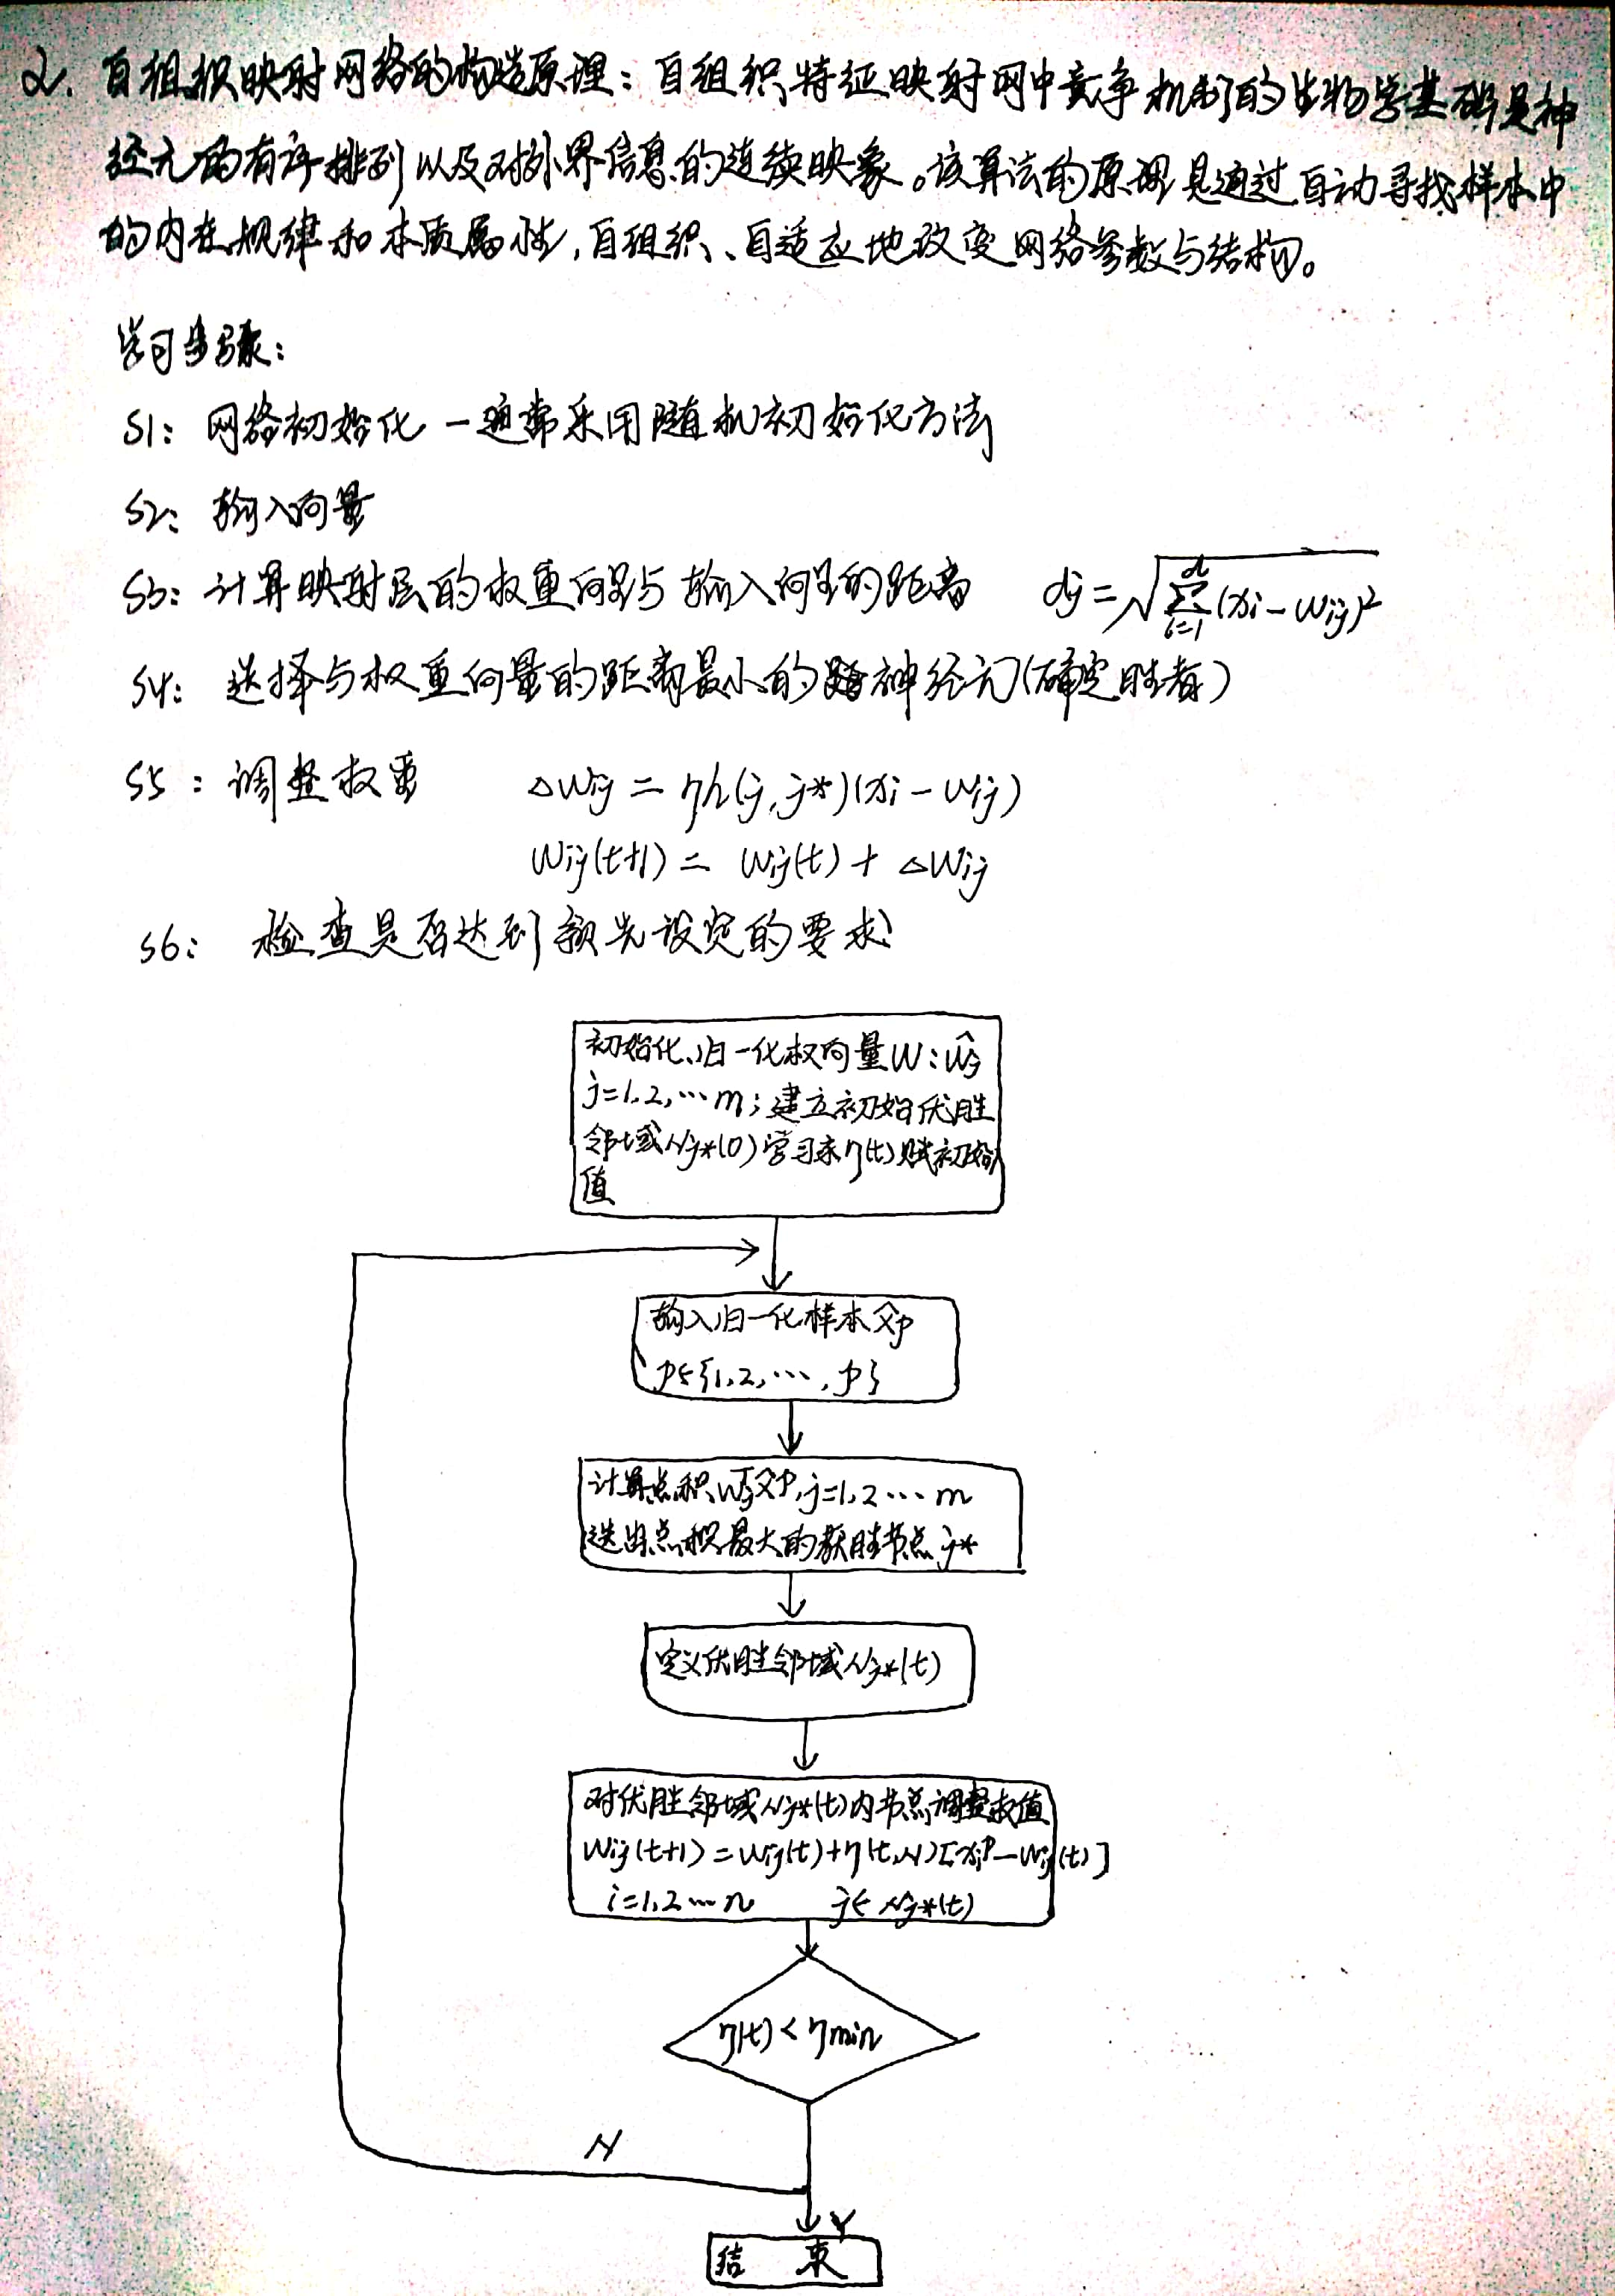 2. 自组织映射网络的构造原理：自组织特征映射网中竞争机制的生物学基础是神
经元的有序排列以及对外界信息的连续映象。该算法的原理是通过自动寻找样本中
的内在规律和本质属性，自组织、自适应地改变网络参数与结构。
学习步骤：
S1：网络初始化－通常采用随机初始化方法
S2：输入向量
S3：计算映射层的权重向量与输入向量的距离 dj=√∑(i=1→d)(xi-wij)²
S4：选择与权重向量的距离最小的神经元(确定胜者)
S5：调整权重 △wij = ηh(j, j*)(xi-wij)
wij(t+1) = wij(t) + △wij
S6： 检查是否达到预先设定的要求
初始化、归一化权向量W：Ŵj
j=1,2,…m；建立初始优胜
邻域Nj*(0) 学习率η(t)赋初始
值
输入归一化样本X̂p
p∈{1,2,…,p}
计算点积ŴjᵀX̂p, j=1,2…m
选出点积最大的获胜节点j*
定义优胜邻域Nj*(t)
对优胜邻域Nj*(t)内节点调整权值
wij(t+1) = wij(t)+η(t,N)[xiᵖ-wij(t)]
i=1,2…n j∈Nj*(t)
η(t) < ηmin
N
Y
结 束